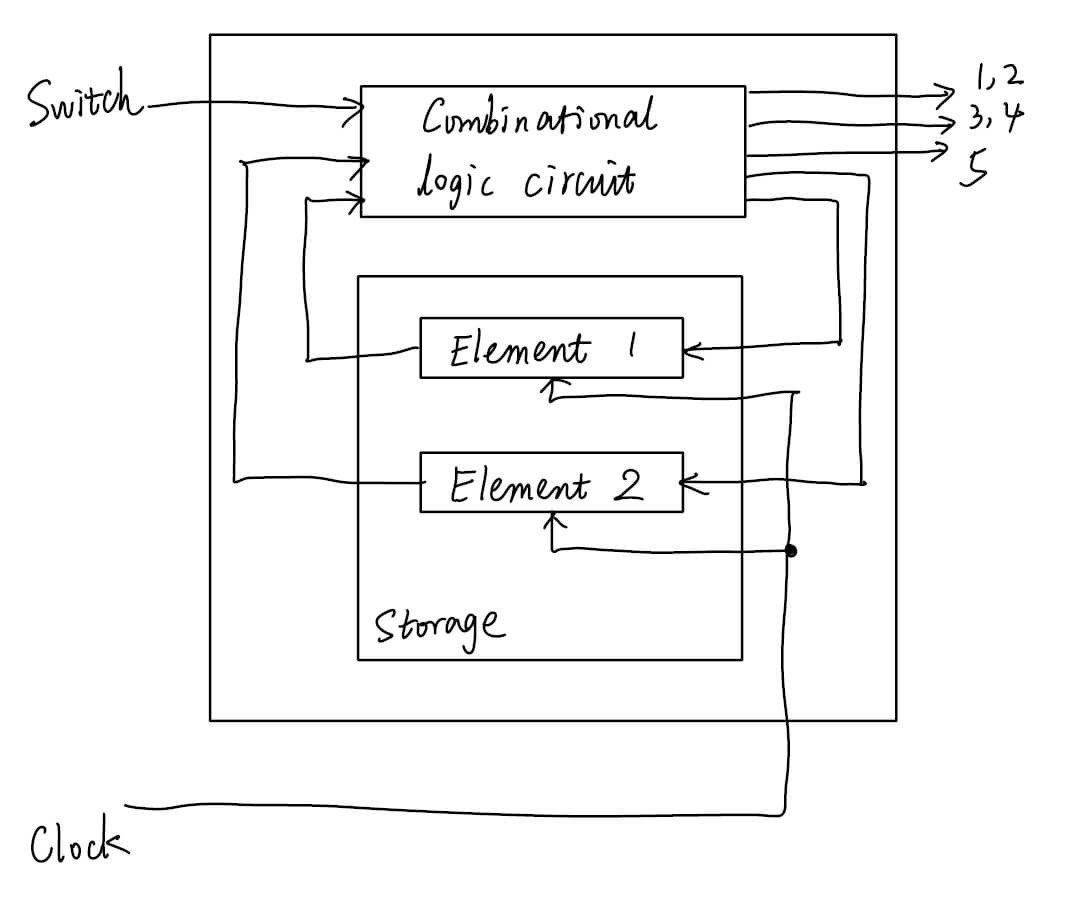 Switch
Combinational
logic circuit
1,2
3,4
5
Element 1
Element 2
Storage
Clock